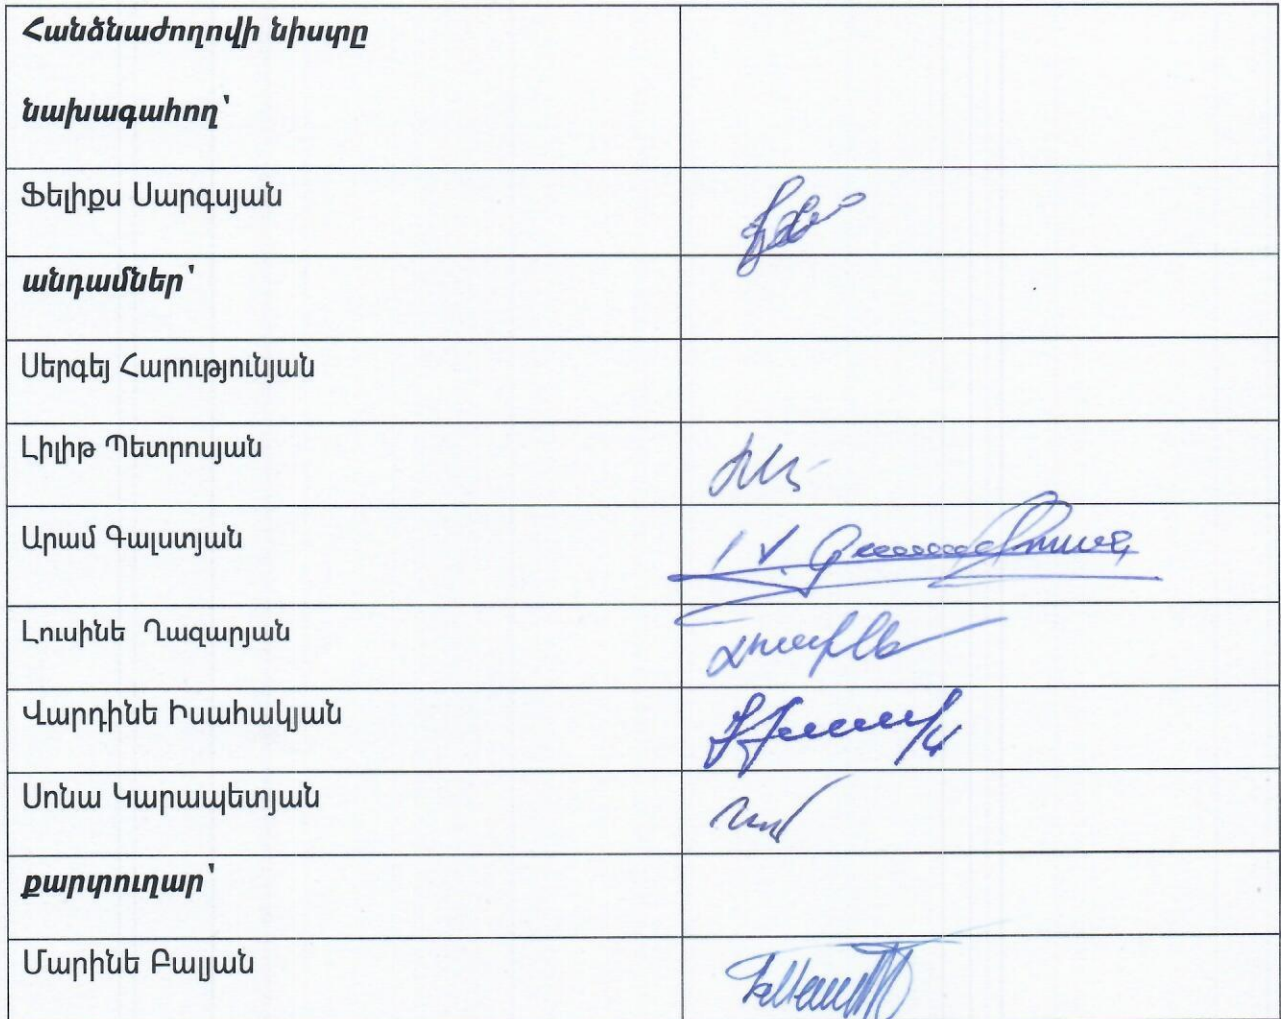 Հանձնաժողովի նիստը
նախագահող՝
Ֆելիքս Սարգսյան
անդամներ՝
Սերգեյ Հարությունյան
Լիլիթ Պետրոսյան
Արամ Գալստյան
Լուսինե Ղազարյան
Վարդինե Իսահակյան
Սոնա Կարապետյան
քարտուղար՝
Մարինե Բալյան